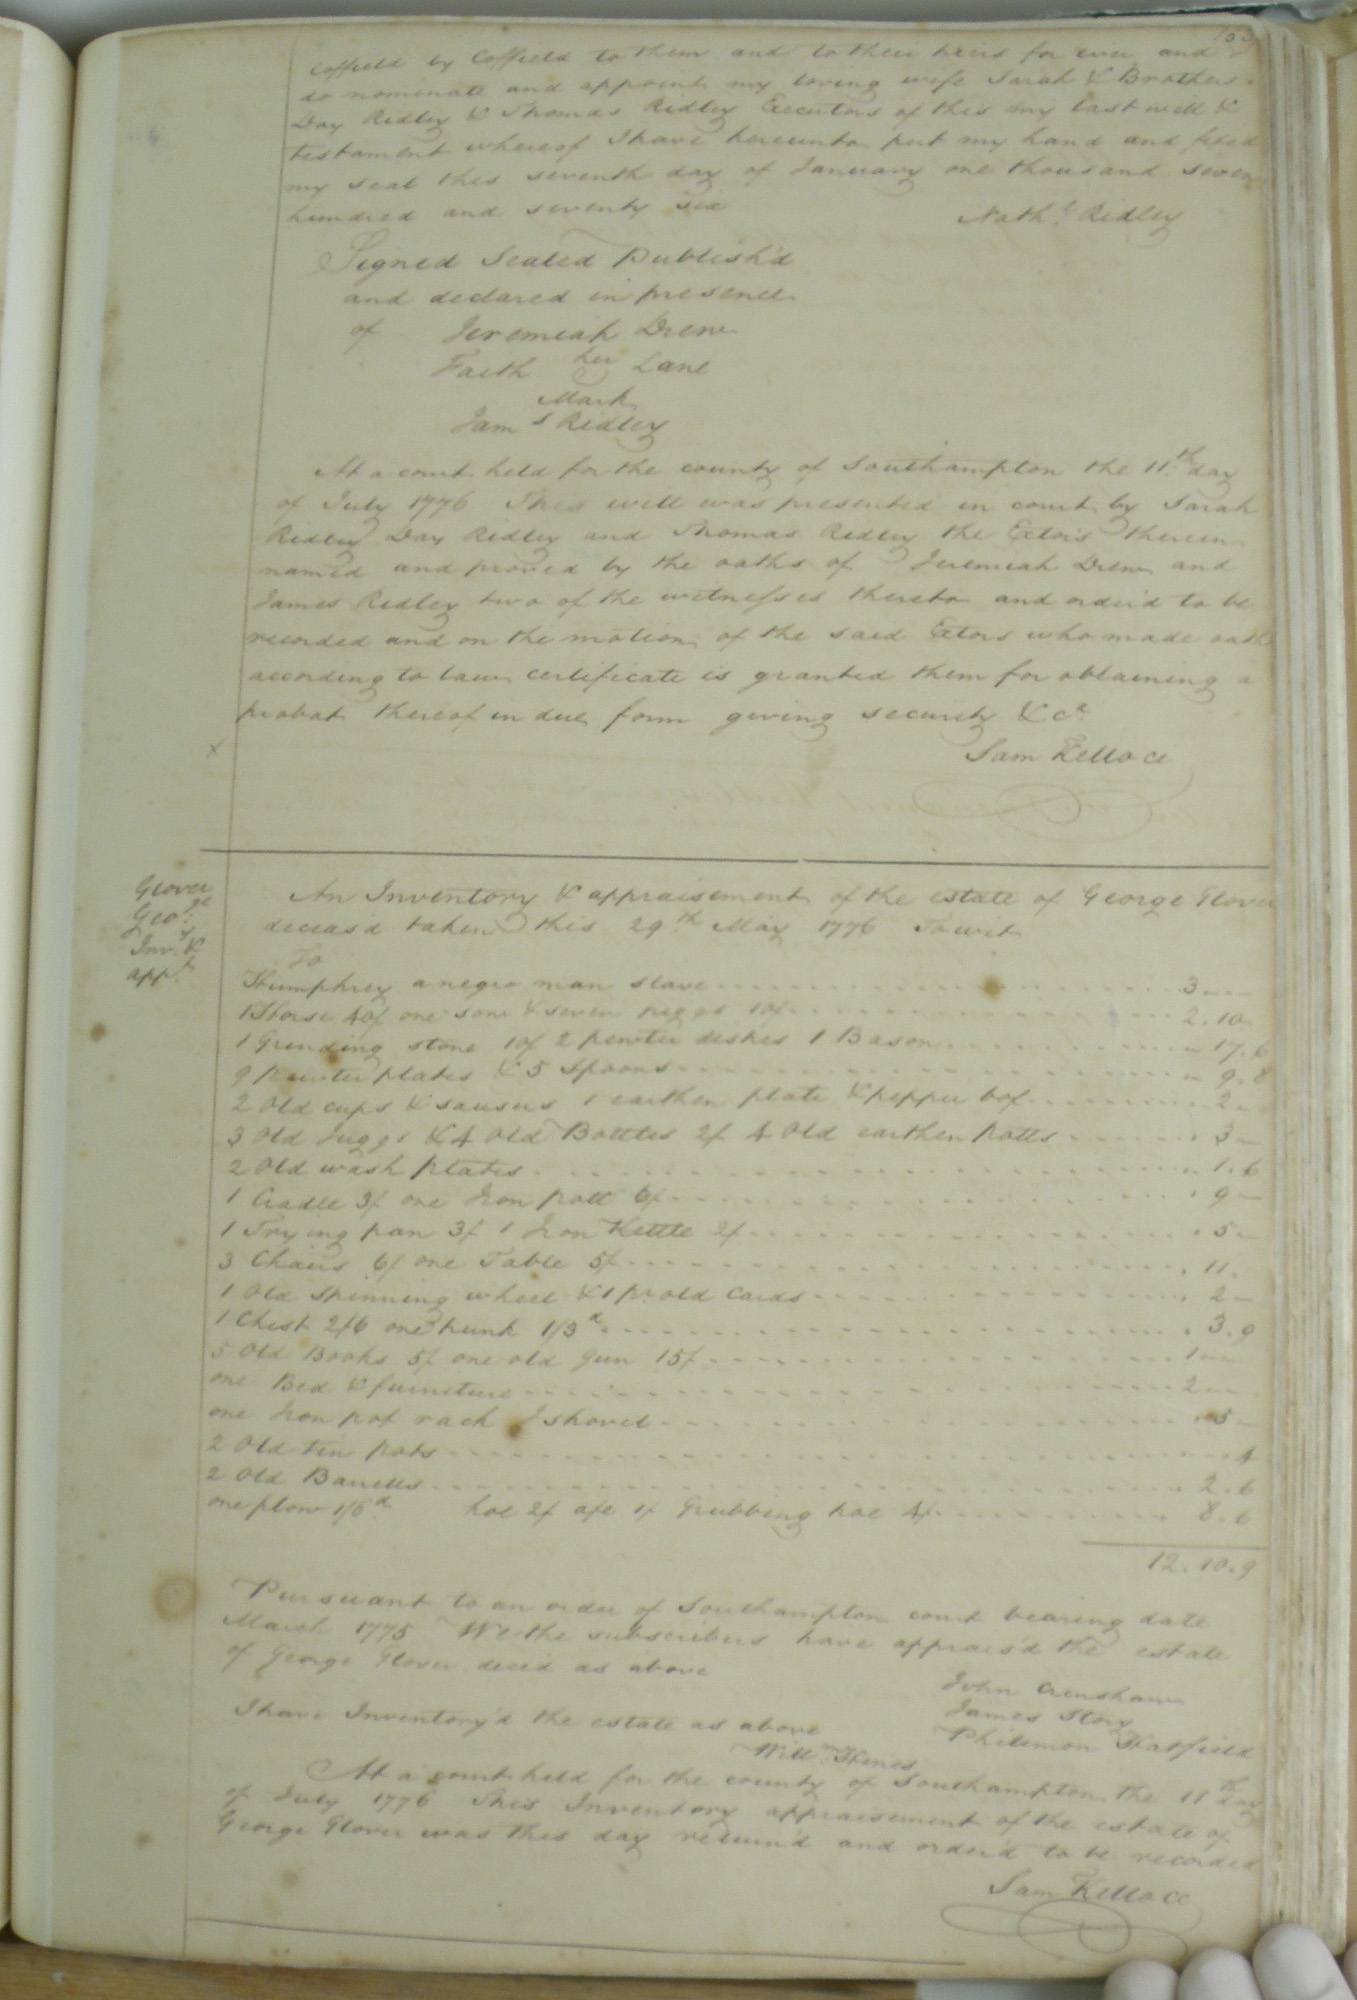 Coffield by Coffield to them and to their heirs for ever and
do nominate and appoint my loving wife Sarah & Brothers
Day Ridley & Thomas Ridley Executors of this my last will &
testament whereof I have hereunto put my hand and fixed
my seal this seventh day of January one thousand seven
hundred and seventy six
Nath.l Ridley
Signed Sealed Publish'd
and declared in presence
of Jeremiah Drew
Faith her Lane
Mark
Jam s Ridley
At a court held for the county of Southampton the 11th day
of July 1776 This will was presented in court by Sarah
Ridley Day Ridley and Thomas Ridley the Extors therein
named and proved by the oaths of Jeremiah Drew and
James Ridley two of the witnesses thereto and order'd to be
recorded and on the motion of the said Extors who made oath
according to law certificate is granted them for obtaining a
probat thereof in due form giving security &ca
Sam Kello cc
Glover
Geo.ge
Inv.y &
app.t
An Inventory & appraisement of the estate of George Glover
deceas'd taken this 29th May 1776 Towit
To
Humphrey a negro man slave 3
1 Horse 40/ one sow & seven piggs 10/ 2.10
1 Grinding stone 10/ 2 pewter dishes 1 Bason 17.6
9 pewter plates & 5 Spoons 9.8
2 Old cups & sausers 1 earthen plate & pepper box 2
3 Old Juggs & 4 Old Bottles 2/ 4 Old earthen potts 3
2 Old wash plates 1.6
1 Cradle 3/ one Iron pott 6/ 9
1 Frying pan 3/ 1 Iron Kettle 2/ 5
3 Chairs 6/ one Table 5/ 11
1 Old Spinning wheel & 1 pr old Cards 2
1 Chest 2/6 one trunk 1/3d 3.9
5 Old Books 5/ one old gun 15/ 1
one Bed & furniture 2
one Iron pot rack & shovel 5
2 Old tin pots 4
2 Old Barrells 2.6
one plow 1/6d hoe 2/ axe 1/ Grubbing hoe 4/ 8.6
12.10.9
Pursuant to an order of Southampton court bearing date
March 1775 We the subscribers have apprais'd the estate
of George Glover deced as above
John Crenshaw
James Story
Philemon Hatfield
I have Inventory'd the estate as above
Will.m Hines
At a court held for the county of Southampton the 11th day
of July 1776 This Inventory appraisement of the estate of
George Glover was this day return'd and order'd to be recorded
Sam Kello cc